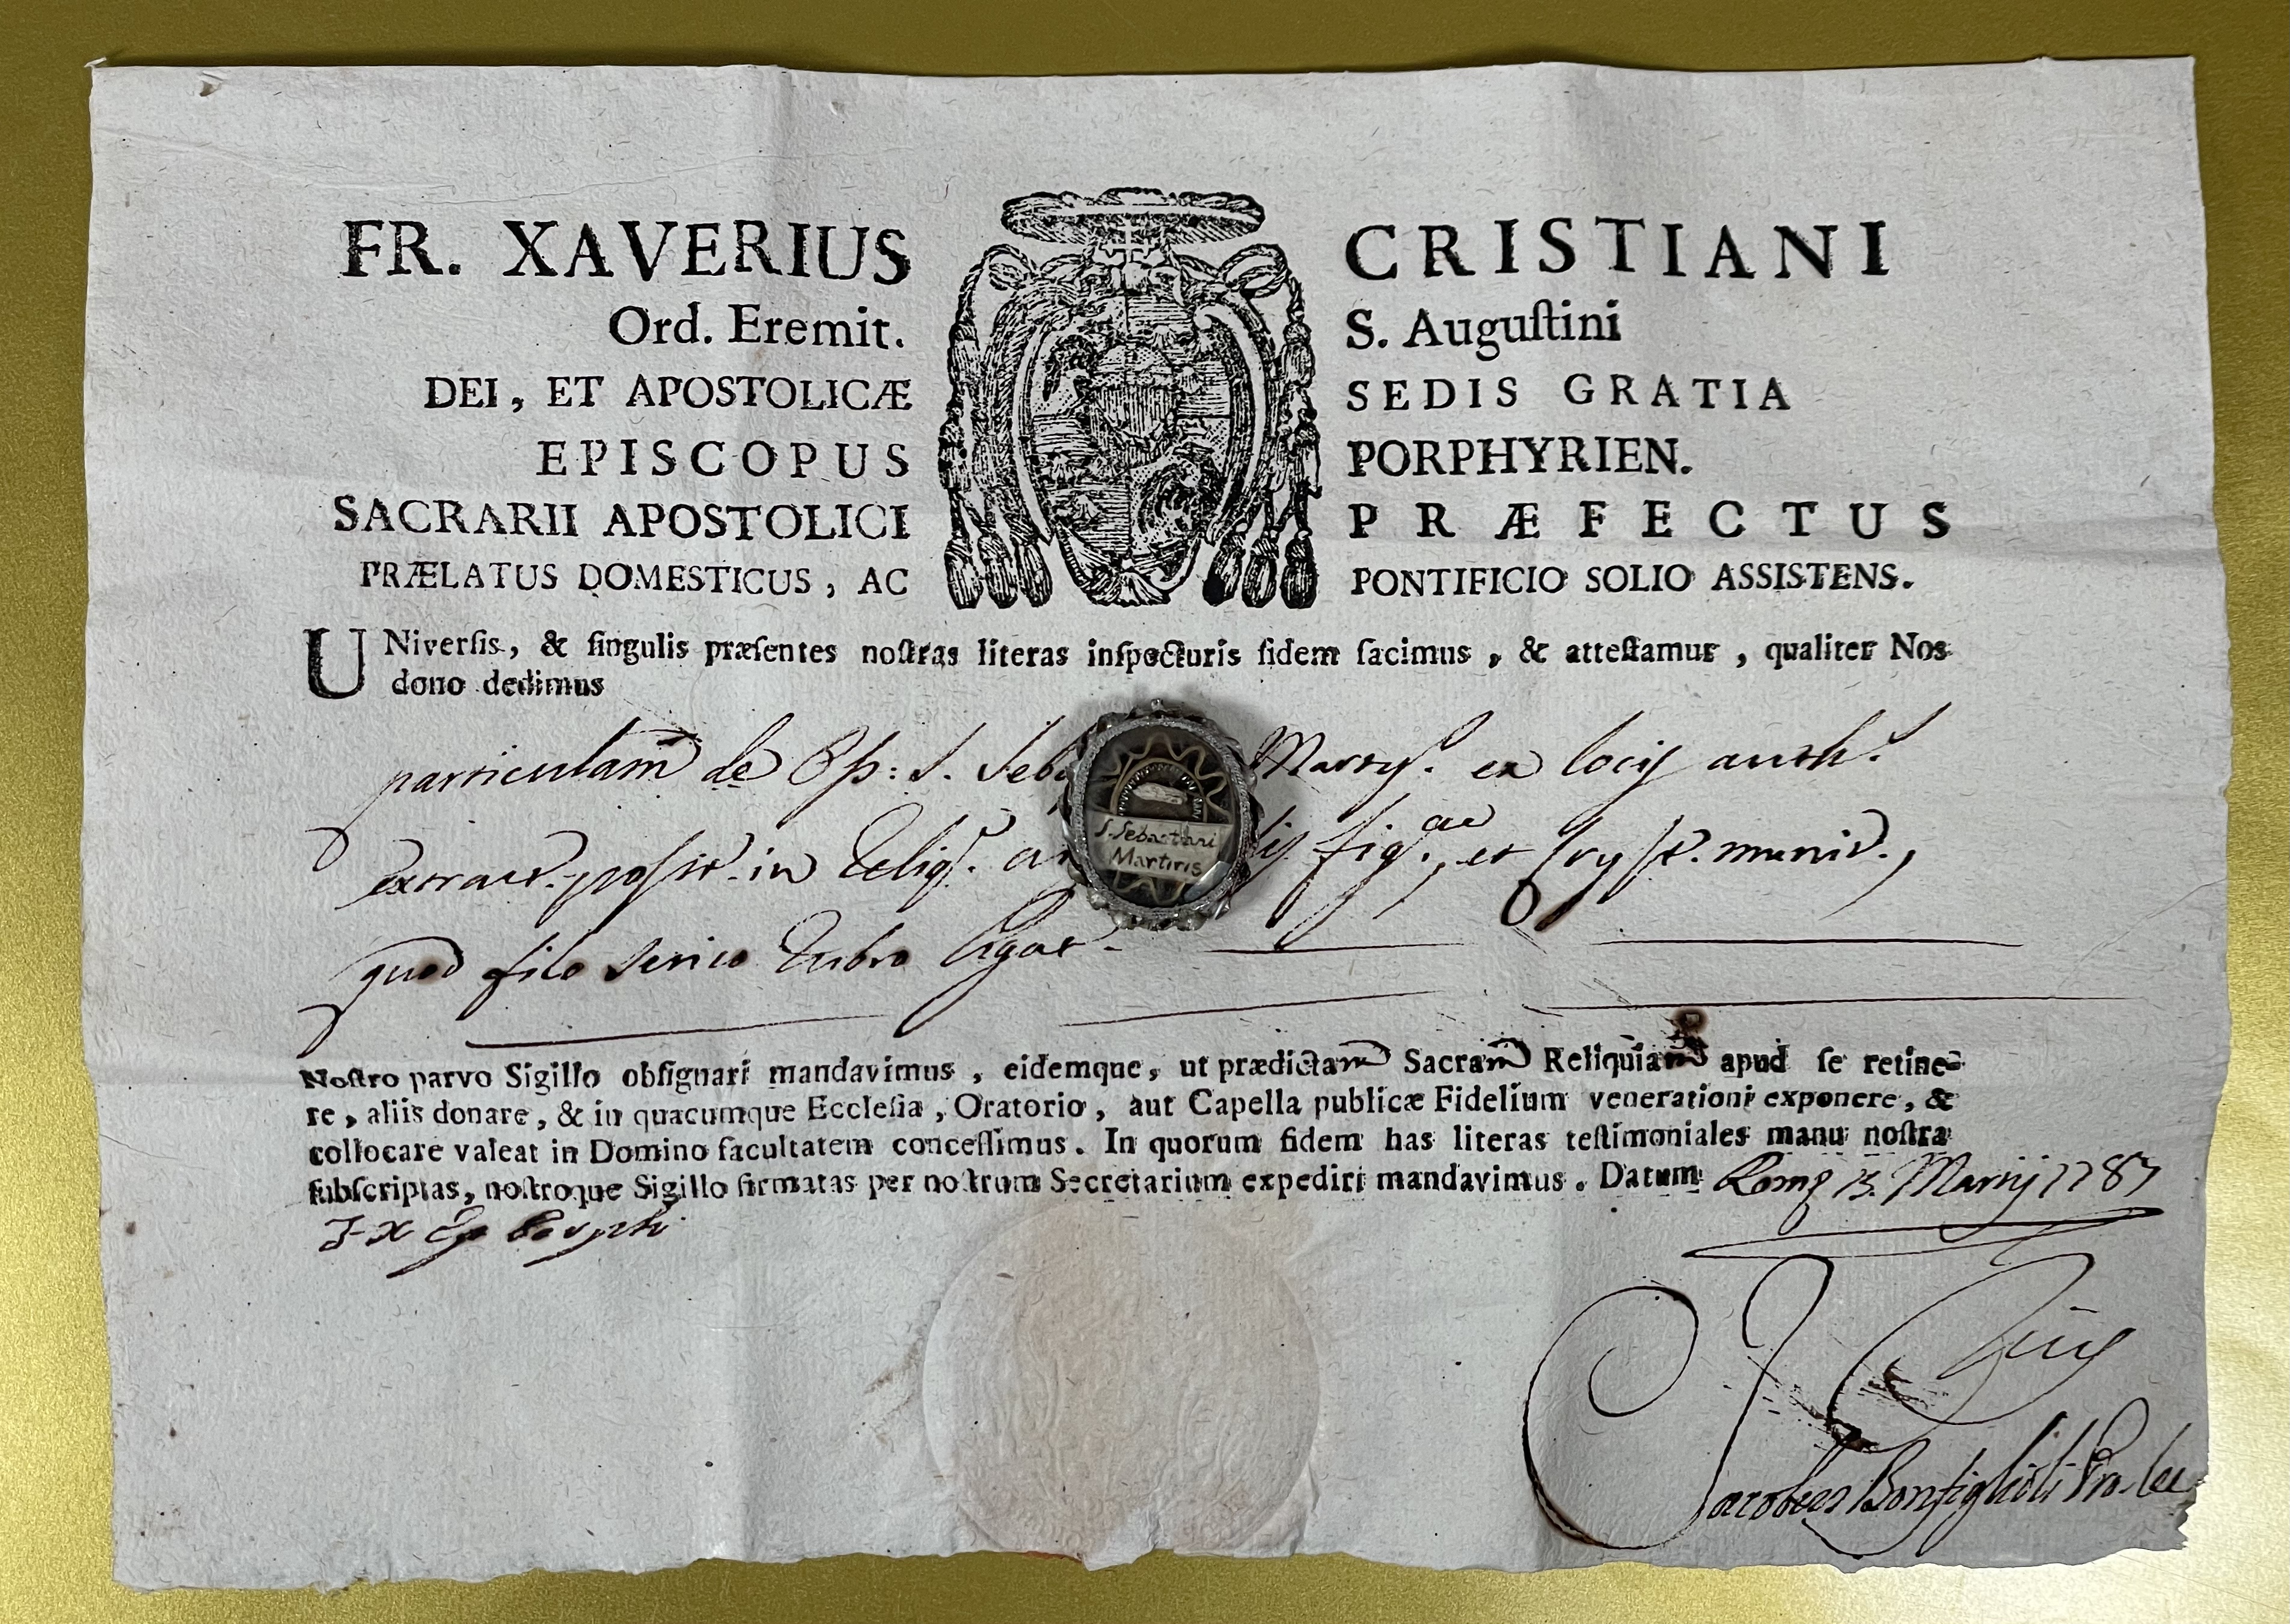 FR. XAVERIUS CRISTIANI
Ord. Eremit. S. Auguſtini
DEI, ET APOSTOLICÆ SEDIS GRATIA
EPISCOPUS PORPHYRIEN.
SACRARII APOSTOLICI PRÆFECTUS
PRÆLATUS DOMESTICUS, AC PONTIFICIO SOLIO ASSISTENS.
UNiverſis, & ſingulis præſentes noſtras literas inſpecturis fidem facimus, & atteſtamur, qualiter Nos
dono dedimus
particulam de S. Seba Marty. ex locis auth.
S. Sebastiani
Martiris
extract. posit. in Reliq. fig. ae, et munit.,
quod filo serico rubro ligat.
Noſtro parvo Sigillo obſignari mandavimus, eidemque, ut prædictam Sacram Reliquiam apud ſe retine-
re, aliis donare, & in quacumque Eccleſia, Oratorio, aut Capella publicæ Fidelium venerationi exponere, &
collocare valeat in Domino facultatem conceſſimus. In quorum fidem has literas teſtimoniales manu noſtra
ſubſcriptas, noſtroque Sigillo firmatas per noſtrum Secretarium expediri mandavimus. Datum Romę 13. Martij 1787
F X Ep Porphi
Jacobus Bonfiglioli Pro.